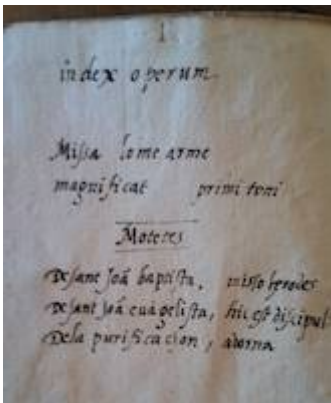 1
index operum
Missa lome arme
magnificat primi toni
Motetes
De sant Joã baptista, misso herodes
De sant Joã euãgelista, hic est discipul
Dela purificacion, adorna